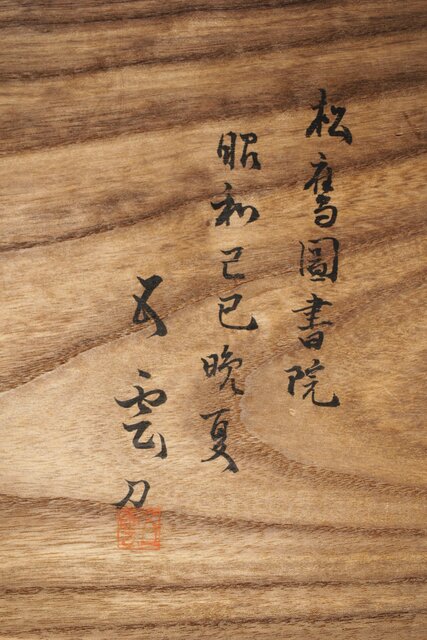 松鷹圖書院
昭和己巳晩夏
五雲刀